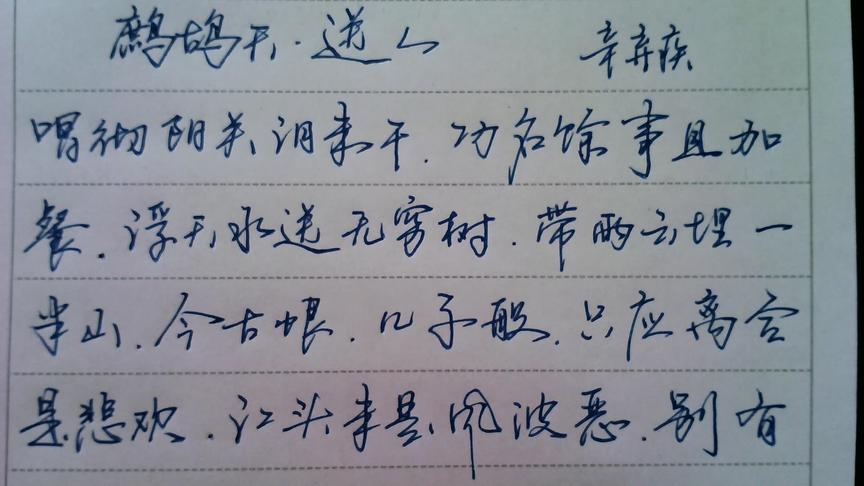 鹧鸪天·送人 辛弃疾
唱彻阳关泪未干.功名馀事且加
餐.浮天水送无穷树.带雨云埋一
半山.今古恨.几千般.只应离合
是悲欢.江头未是风波恶.别有